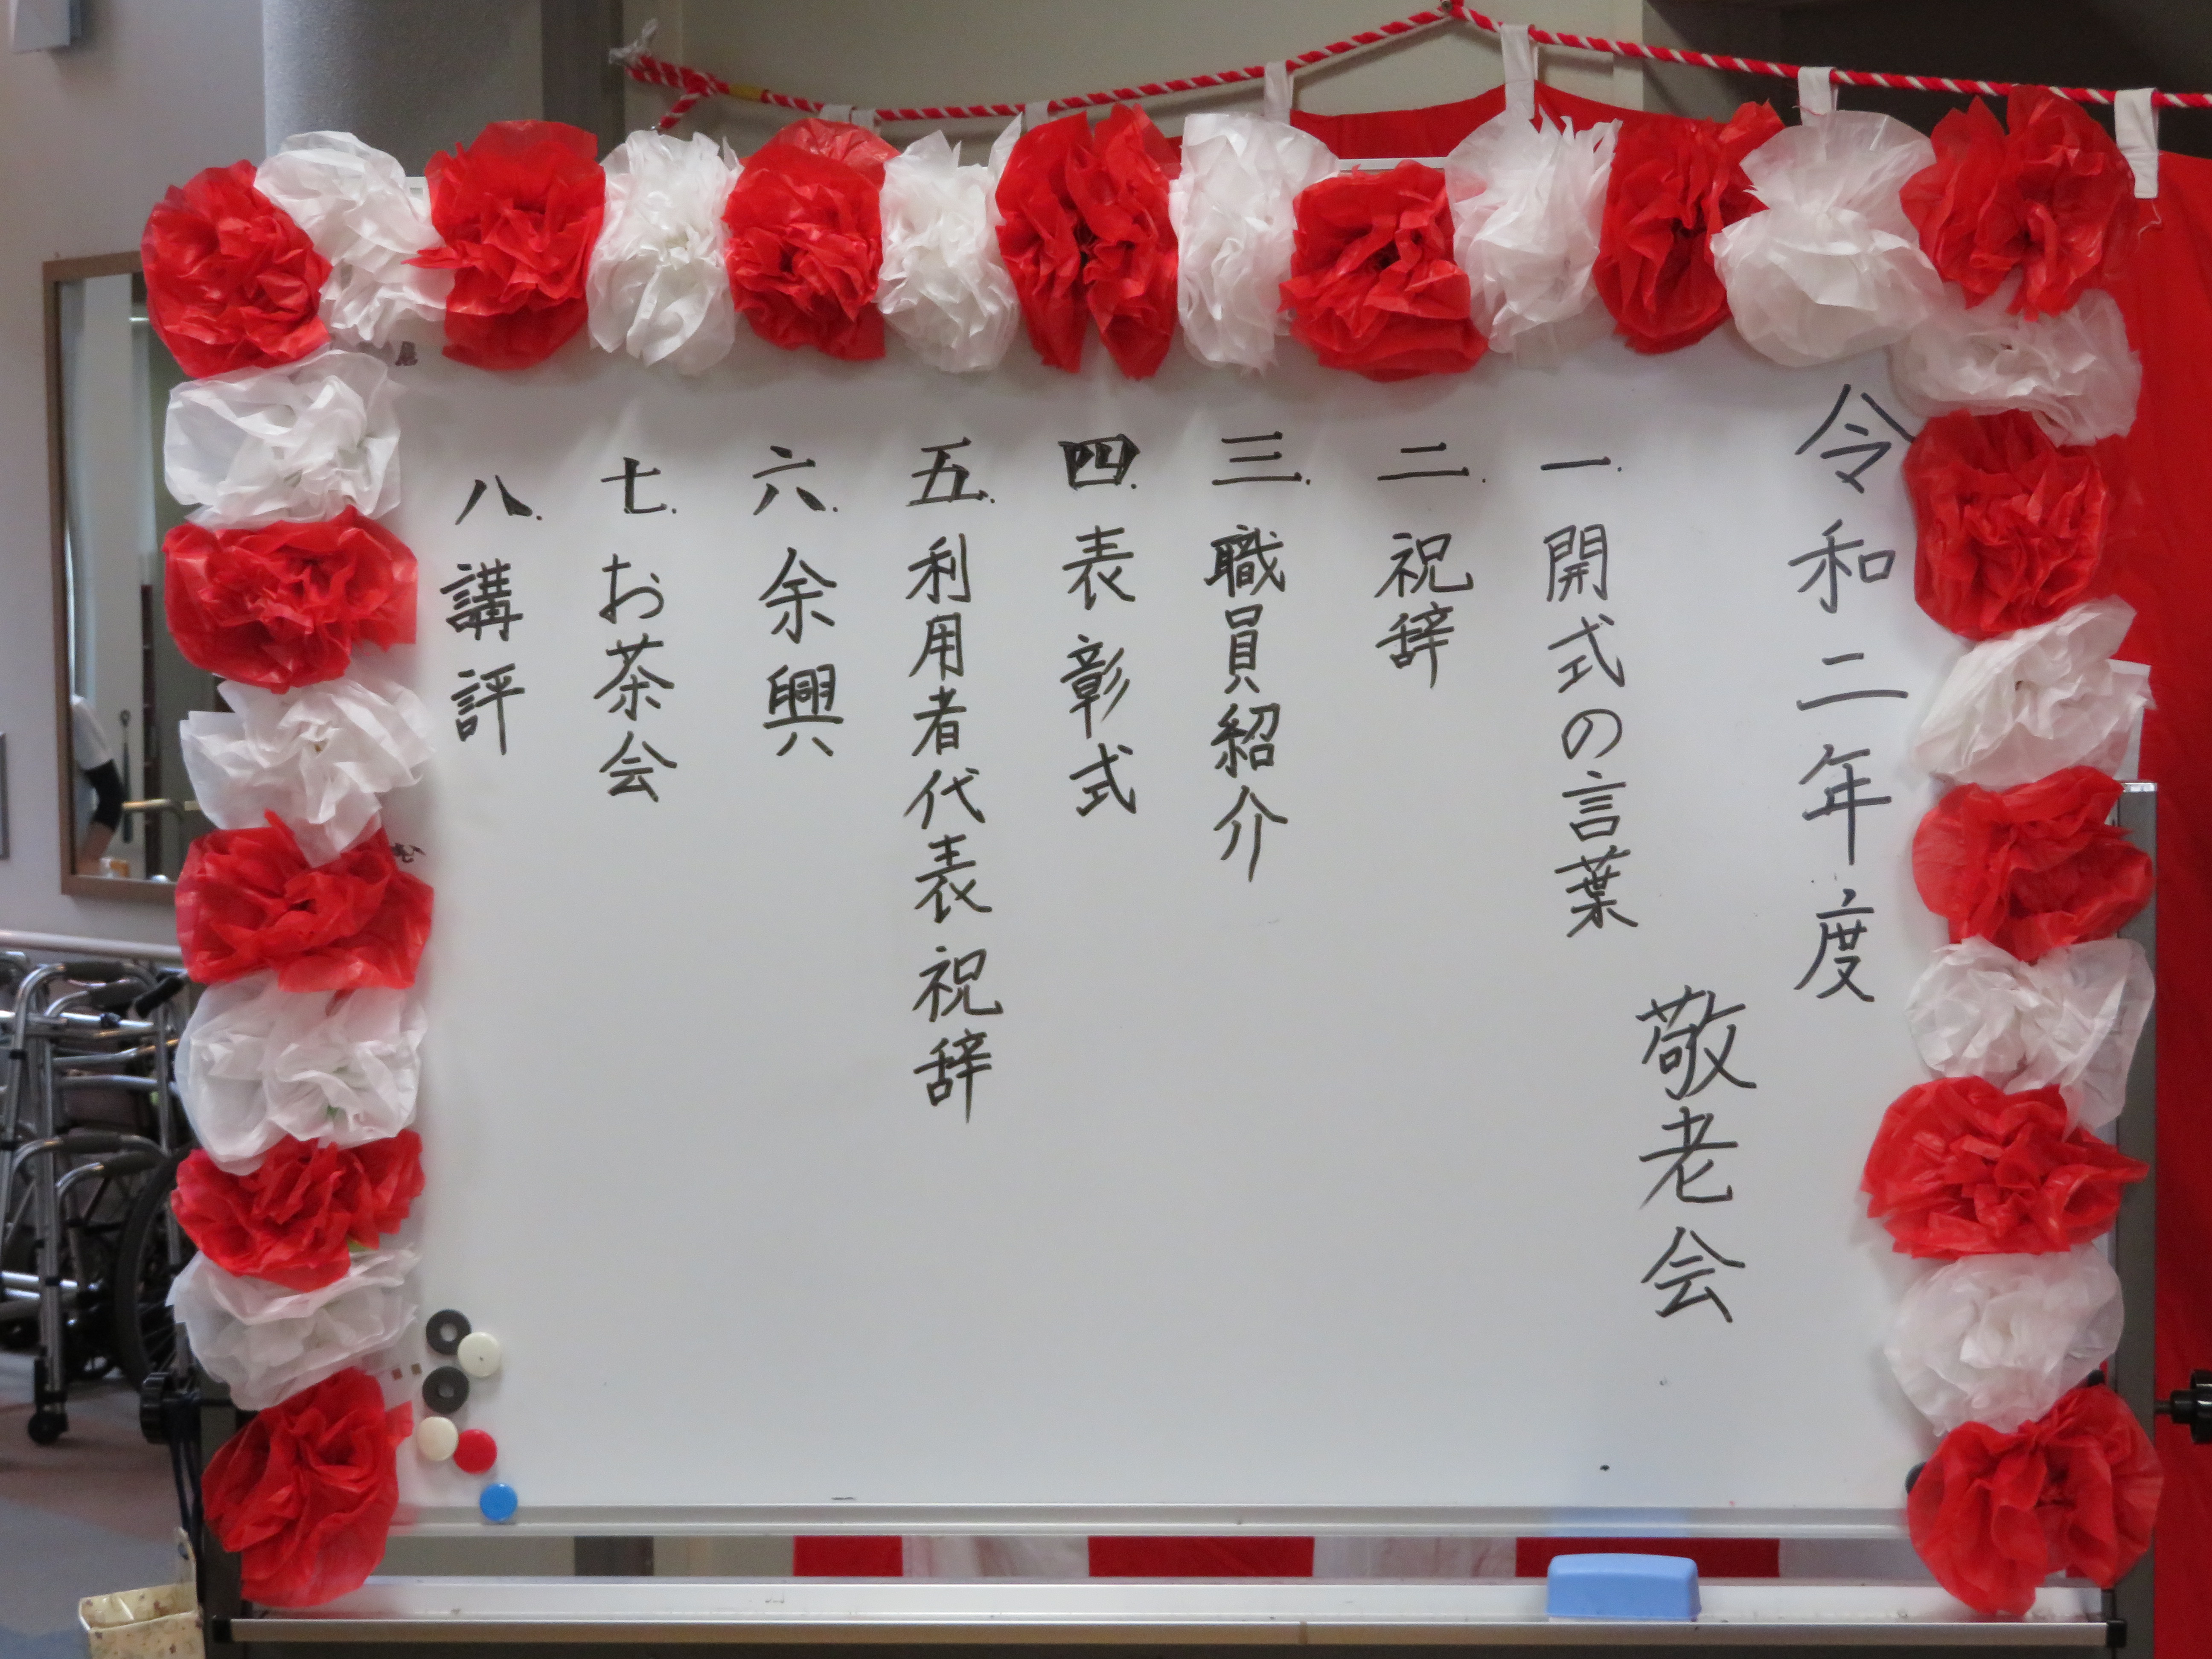 令和二年度
敬老会
一.開式の言葉
二.祝辞
三.職員紹介
四.表彰式
五.利用者代表祝辞
六.余興
七.お茶会
八.講評